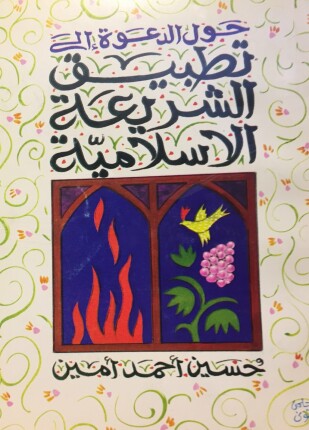 حول الدعوة إلى
تطبيق
الشريعة
الاسلامية
حسين أحمد أمين